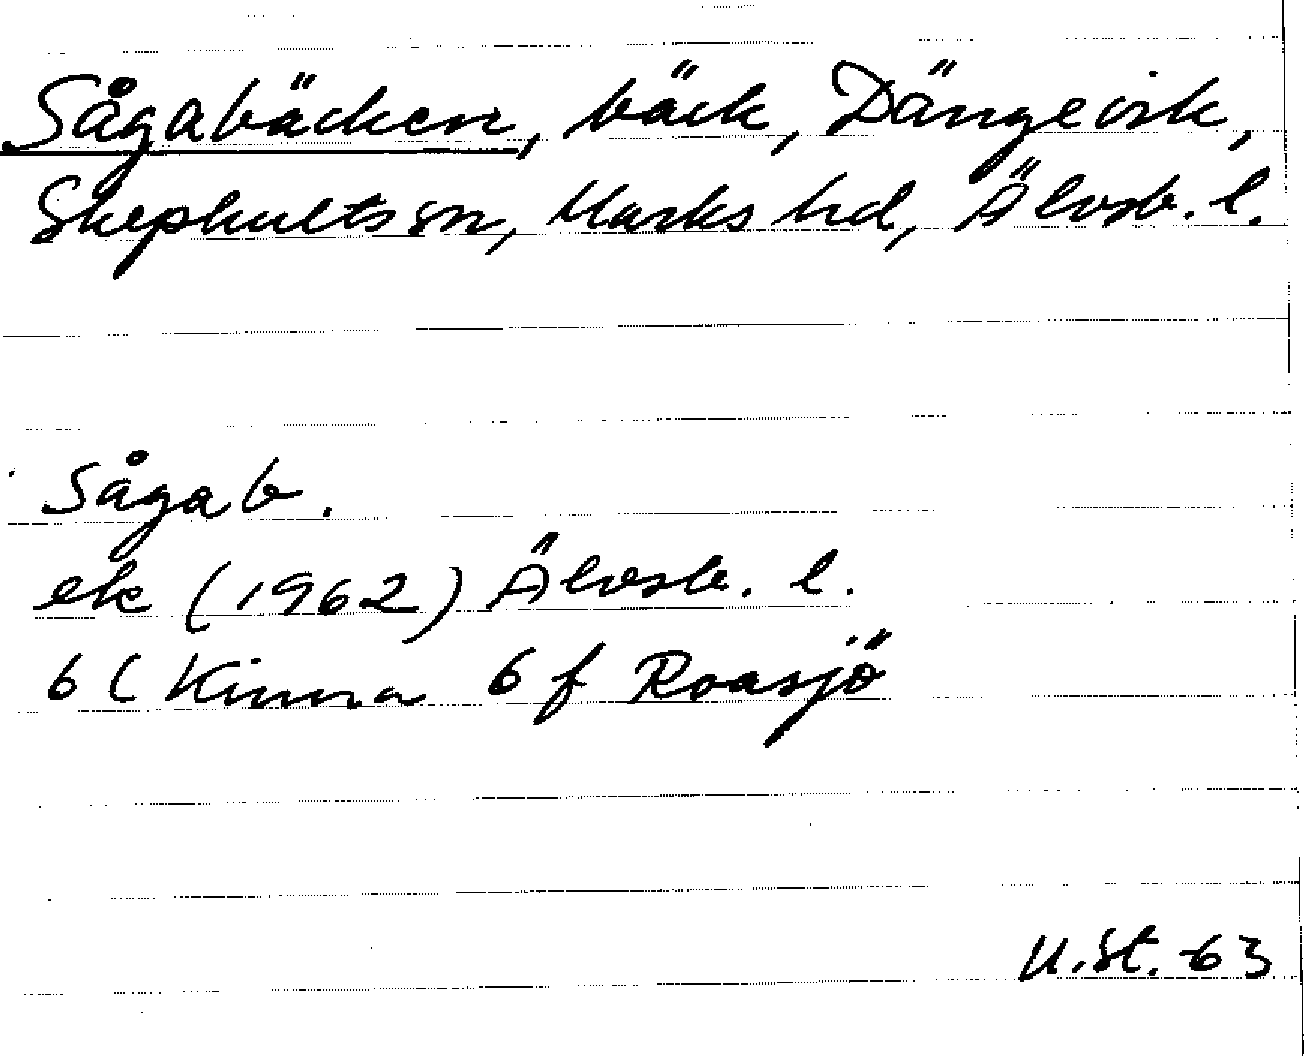 Sågabäcken, bäck, Dängevik,
Skephults sn, Marks hd, Älvsb. l.
Sågab.
ek (1962) Älvsb. l.
6 C Kinna 6 f Roasjö
U.St. -63